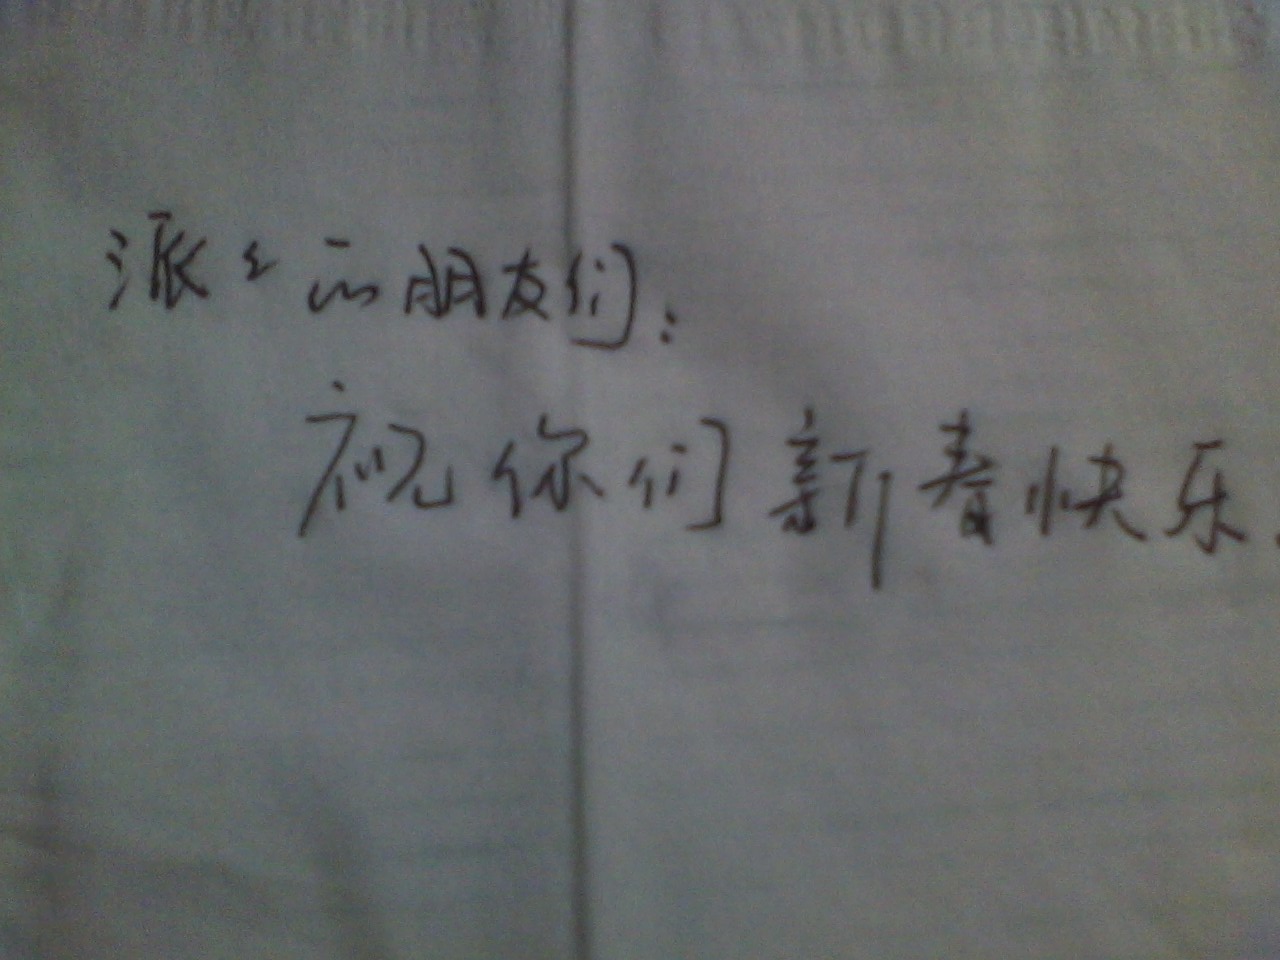 派上的朋友们：
祝你们新春快乐.